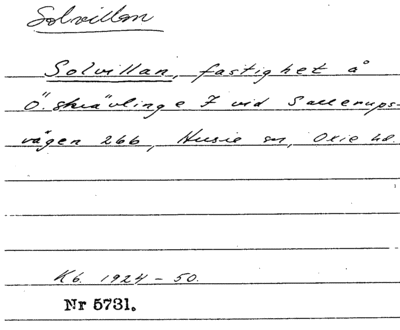 Solvillan
Solvillan, fastighet å
Ö. Skrävlinge 7 vid Sallerups-
vägen 266, Husie sn, Oxie hd.
Kb. 1924 – 50.
Nr 5731.